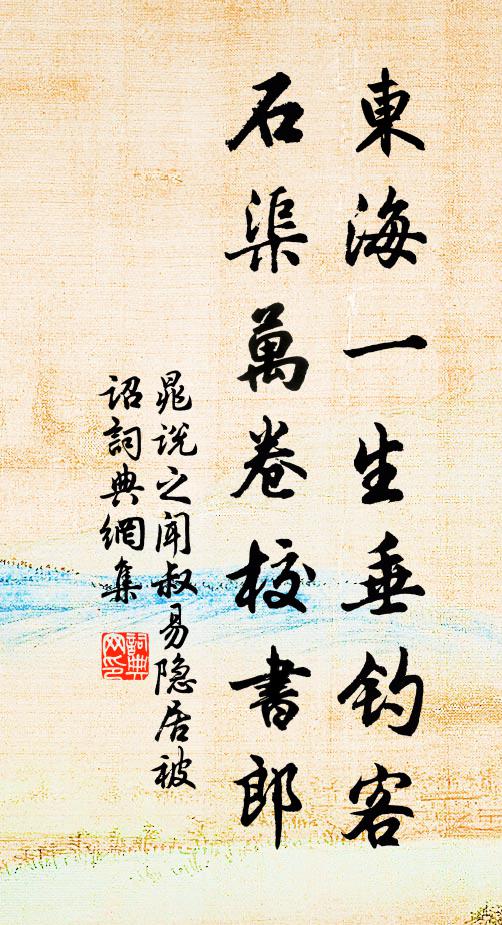 東海一生垂釣客
石渠萬卷校書郎
晁说之闻叔易隐居被
诏詞典網集
詞典网印